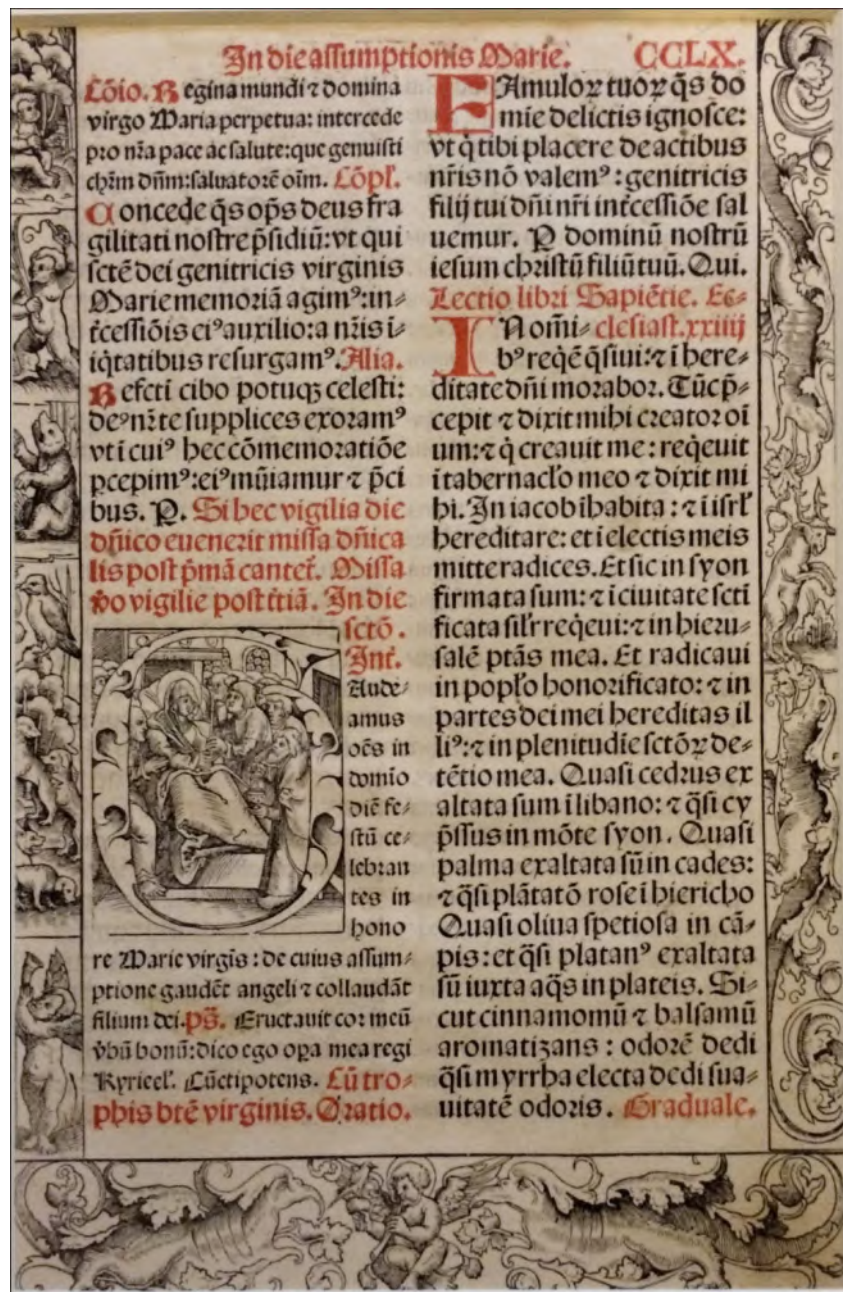 In die assumptionis Marie. CCLX.
Cōio. Regina mundi ⁊ domina
virgo Maria perpetua: intercede
pro nr̄a pace ac salute: que genuisti
chr̄m dn̄m: saluatorē oīm. Cōpl̕.
Concede q̄s op̄s deus fra
gilitati nostre p̄sidiū: vt qui
sctē dei genitricis virginis
Marie memoriā agimꝰ: in⸗
t̄cessiōis eiꝰ auxilio: a nr̄is i⸗
iq̄tatibus resurgamꝰ. Alia.
Refecti cibo potuqꝫ celesti:
deꝰ nr̄ te supplices exoramꝰ
vt i cuiꝰ hec cōmemoratiōe
ꝑcepimꝰ: eiꝰ mūiamur ⁊ p̄ci
bus. P. Si hec vigilia die
dn̄ico euenerit missa dn̄ica
lis post p̄mā cantet̄. Missa
v̄o vigilie post t̄tiā. In die
sctō.
Int̄.
Gaude⸗
amus
oēs in
domīo
diē fe⸗
stū ce⸗
lebran
tes in
hono
re Marie virgīs: de cuius assum⸗
ptione gaudēt angeli ⁊ collaudāt
filium dei. ps̄. Eructauit cor meū
v̄bū bonū: dico ego oꝑa mea regi
Kyrieel̕. Cūctipotens. Cū tro⸗
phis btē virginis. Oratio.
FAmuloꝝ tuoꝝ q̄s do
mie delictis ignosce:
vt q̇ tibi placere de actibus
nr̄is nō valemꝰ: genitricis
filij tui dn̄i nr̄i int̄cessiōe sal
uemur. P dominū nostrū
iesum christū filiū tuū. Qui.
Lectio libri Sapiētie. Ec⸗
IN om̄i⸗ clesiast. xxiiij
bꝰ reqē q̄siui: ⁊ i here⸗
ditate dn̄i morabor. Tūc p̄⸗
cepit ⁊ dixit mihi creator oī
um: ⁊ q̇ creauit me: reqeuit
i tabernacl̕o meo ⁊ dixit mi
hi. In iacob ihabita: ⁊ i isrl̕
hereditare: et i electis meis
mitte radices. Et sic in syon
firmata sum: ⁊ i ciuitate scti
ficata sil̕r reqeui: ⁊ in hieru⸗
salē ptās mea. Et radicaui
in popl̕o honorificato: ⁊ in
partes dei mei hereditas il
liꝰ: ⁊ in plenitudīe sctōꝝ de⸗
tētio mea. Quasi cedrus ex
altata sum i libano: ⁊ q̄si cy
p̄ssus in mōte syon. Quasi
palma exaltata sū in cades:
⁊ q̄si plātatō rose i hiericho
Quasi oliua spetiosa in cā⸗
pis: et q̄si platanꝰ exaltata
sū iuxta aq̄s in plateis. Si⸗
cut cinnamomū ⁊ balsamū
aromatizans: odorē dedi
q̄si myrrha electa dedi sua⸗
uitatē odoris. Graduale.